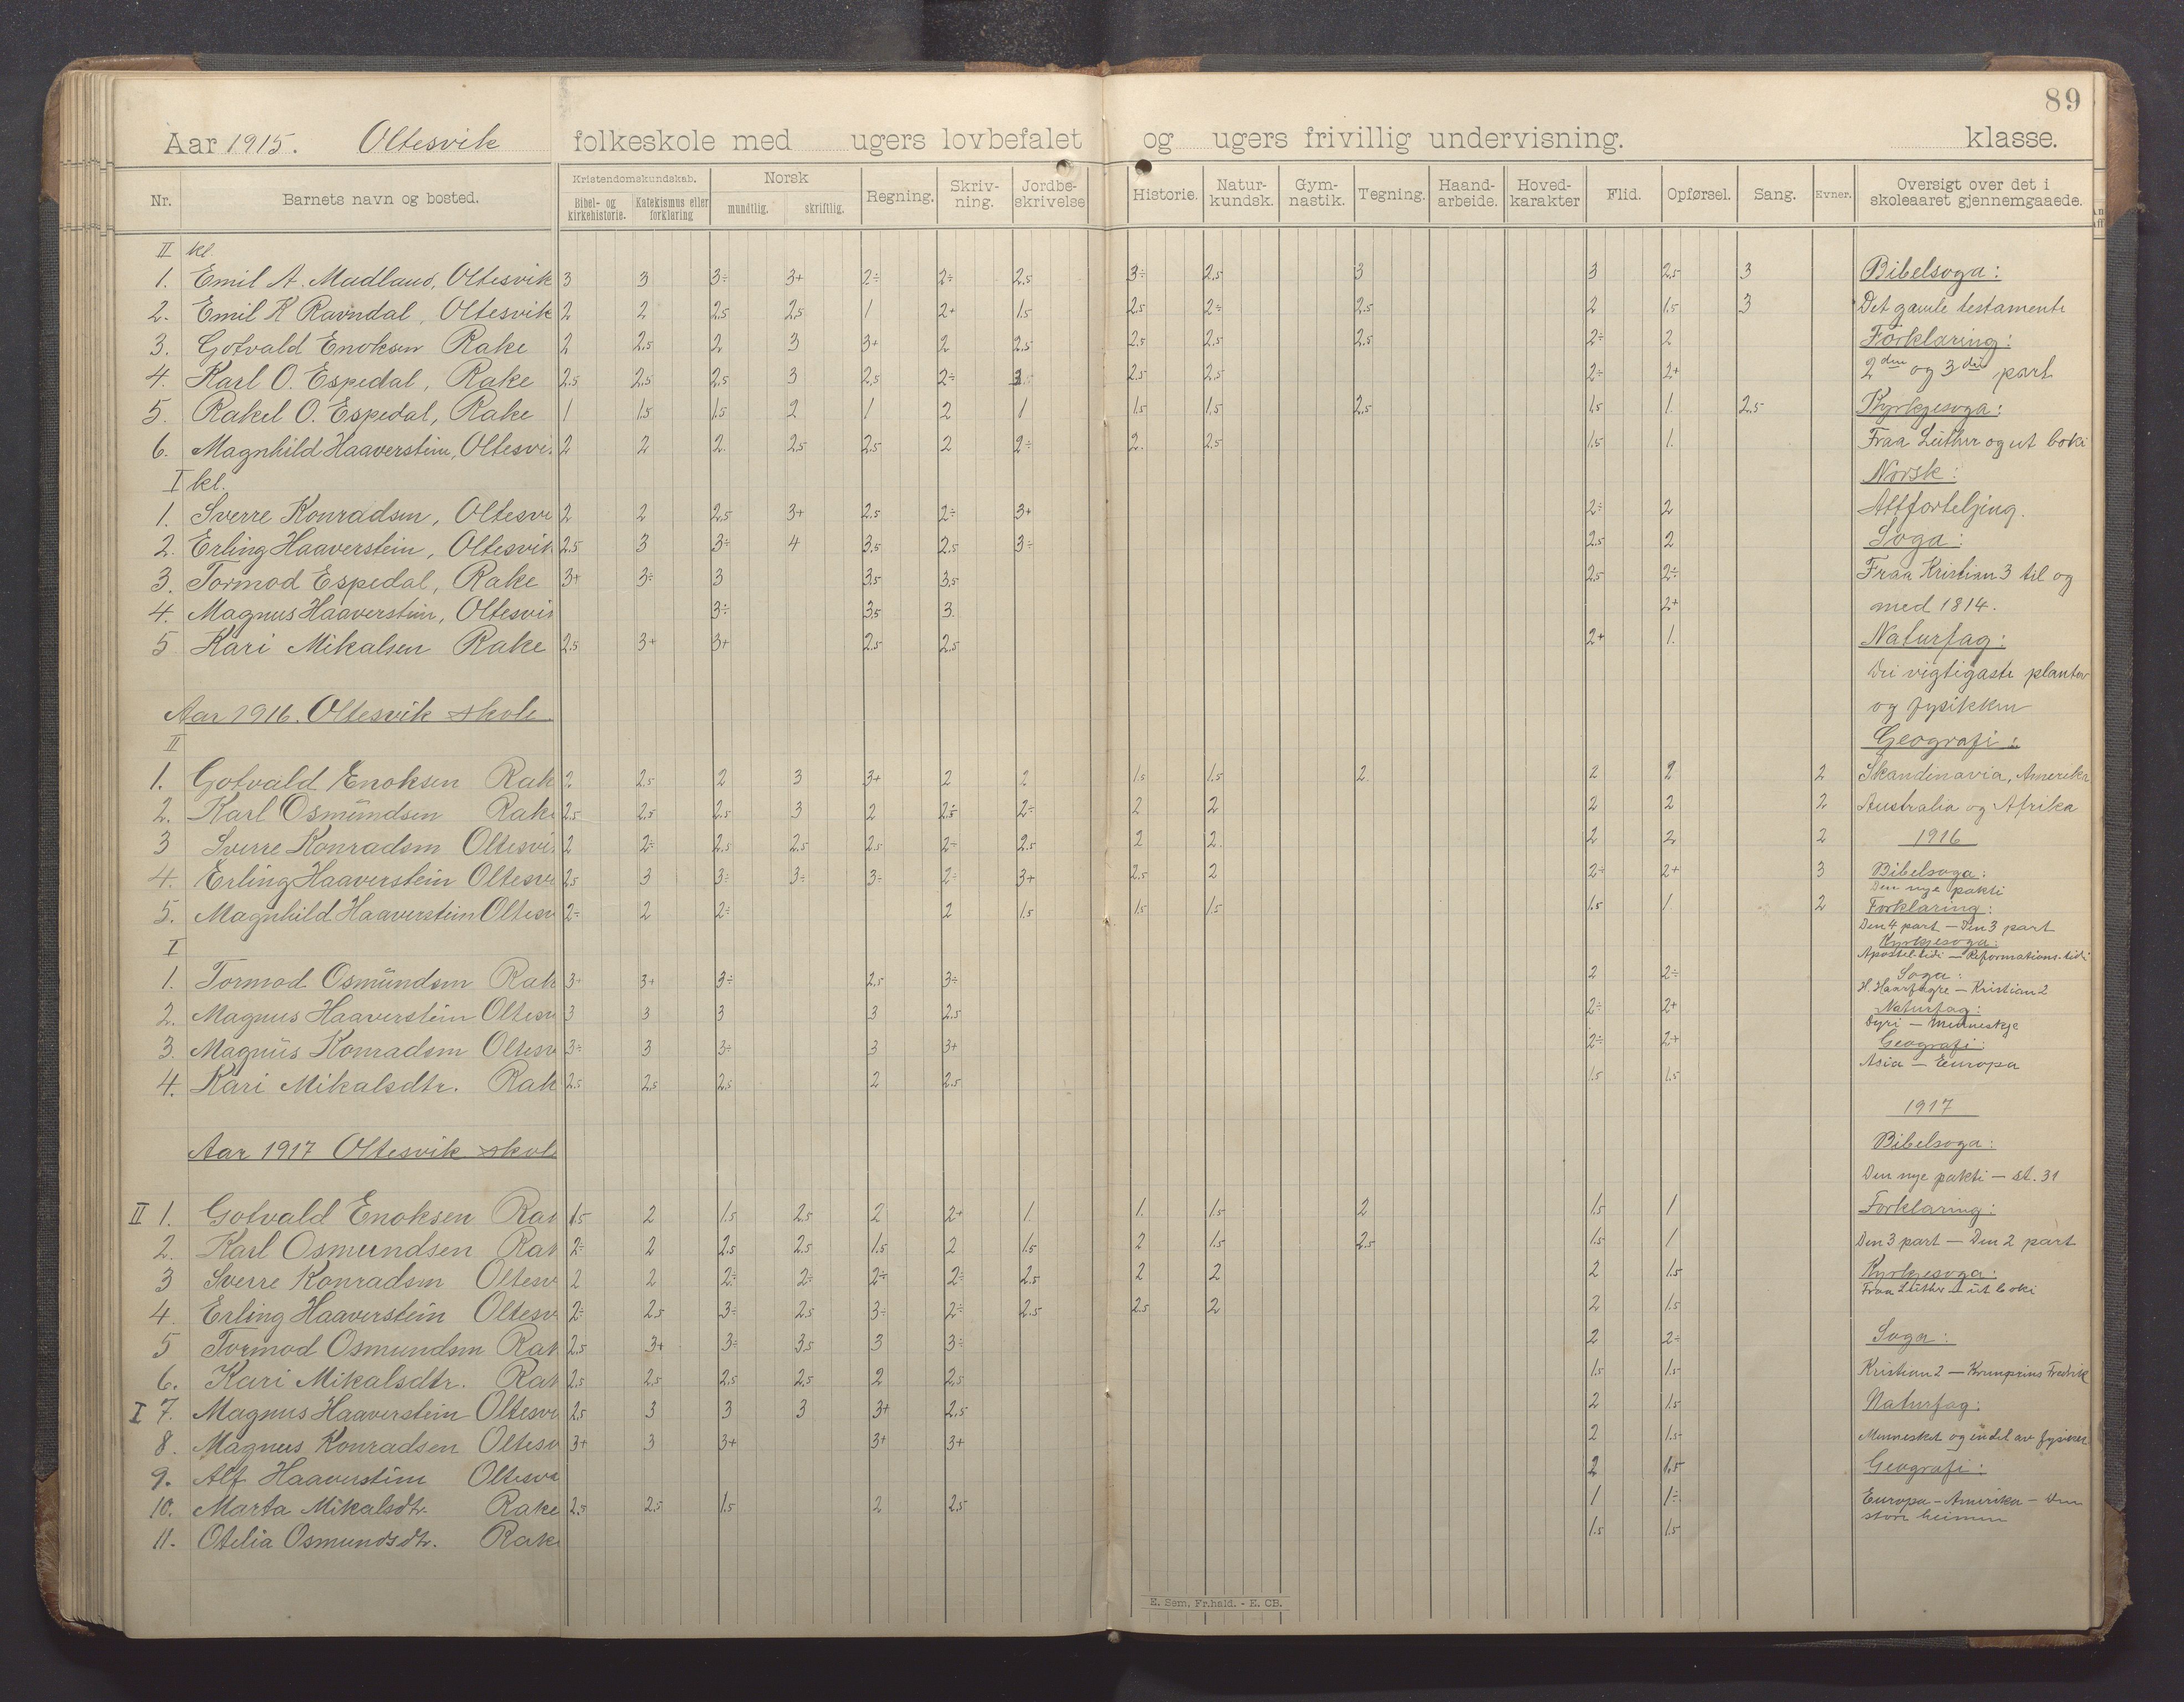 89
Aar 1915. Oltesvik folkeskole med ugers lovbefalet og ugers frivillig undervisning. klasse.
Nr. Barnets navn og bosted. Kristendomskundskab. Bibel- og kirkehistorie. Katekismus eller forklaring Norsk mundtlig. skriftlig. Regning. Skriv-ning. Jordbe-skrivelse Historie. Natur-kundsk. Gym-nastik. Tegning. Haand-arbeide. Hoved-karakter Flid. Opførsel. Sang. Evner. Oversigt over det i skoleaaret gjennemgaaede.
II kl.
1. Emil A. Madland, Oltesvik 3 3 3÷ 3+ 2÷ 2÷ 2.5 3÷ 2.5 3 3 2.5 3 Bibelsoga:
2. Emil K Ravndal, Oltesvik 2 2 2.5 2.5 1 2+ 1.5 2.5 2÷ 2.5 2 1.5 3 Det gamle testamente
3. Gotvald Enoksen Rake 2 2.5 2 3 3+ 2 2.5 2.5 2.5 2.5 2÷ 2 Forklaring:
4. Karl O. Espedal, Rake 2.5 2.5 2.5 3 2.5 2÷ 2.5 2.5 2÷ 2+ 2den og 3die part
5. Rakel O. Espedal, Rake 1 1.5 1.5 2 1 2 1 1.5 1.5 2.5 1.5 1. 2.5 Kyrkjesoga:
6. Magnhild Haaverstein, Oltesvi 2 2 2. 2.5 2.5 2 2÷ 2. 2.5 1.5 1. Fraa Luther og ut boki
I kl. Norsk:
1. Sverre Konradsen, Oltesvi 2 2 2.5 3+ 2.5 2÷ 3+ 2÷ 2 Attforteljing.
2. Erling Haaverstein, Oltesvik 2.5 3 3÷ 4 3.5 2.5 3÷ 2.5 2 Soga:
3. Tormod Espedal, Rake 3+ 3÷ 3 3.5 3.5 2.5 2÷ Fraa Kristian 3 til og
4. Magnus Haaverstein, Oltesvi 3÷ 3.5 3. 2+ med 1814.
5 Kari Mikalsen Rake 2.5 3+ 3+ 2.5 2.5 2+ 1. Naturfag:
Dei vigtigaste plantor
Aar 1916. Oltesvik skole og fysikken
II Geografi:
1. Gotvald Enoksen Rak 2 2.5 2 3 3+ 2 2 1.5 1.5 2. 2 2 2 Skandinavia, Amerika
2. Karl Osmundsen Rake 2.5 2.5 2.5 3 2 2.÷ 2÷ 2 2 2 2 2 Australia og Afrika
3 Sverre Konradsen Oltesvi 2 2÷ 2.5 2.5 2.5 2÷ 2.5 2 2. 2 2 2 1916
4. Erling Haaverstein Oltesvi 2.5 3 3÷ 3÷ 3÷ 2÷ 3+ 2.5 2 2÷ 2+ 3 Bibelsoga:
Den nye pakti
5. Magnhild Haaverstein Oltesv 2÷ 2 2÷ 2 1.5 1.5 1.5 1.5 1. 2 Forklaring:
Den 4 part — Den 3 part
I Kyrkjesoga:
Apostel-tidi — Reformations-tidi
1. Tormod Osmundsen Rak 3÷ 3+ 3÷ 2.5 3÷ 2 2÷ Soga:
H. Haarfagre — Kristian 2
2. Magnus Haaverstein Oltesv 3 3 3 3 2.5 2÷ 2+ Naturfag:
Dyri — Menneskje
3. Magnus Konradsen Oltesv 3÷ 3 3÷ 3 3+ 2÷ 2+ Geografi:
4. Kari Mikalsdtr. Rak 2.5 2.5 2.5 2 2.5 1.5 1.5 Asia — Europa
1917
Aar 1917 Oltesvik skole Bibelsoga:
Den nye pakti — st. 31
II 1. Gotvald Enoksen Rak 1.5 2 1.5 2.5 2 2+ 1. 1. 1.5 2 1.5 1 Forklaring:
2. Karl Osmundsen Rak 2÷ 2 2.5 2.5 1.5 2 1.5 2 1.5 2.5 1.5 1 Den 3 part — Den 2 part
3 Sverre Konradsen Oltesv 2 2 2÷ 2÷ 2÷ 2÷ 2.5 2 2 2 1.5 Kyrkjesoga:
Fraa Luther — ut boki
4. Erling Haaverstein Oltesv 2÷ 2.5 3÷ 2.5 3÷ 2÷ 2.5 2.5 2 2 1.5
5 Tormod Osmundsen Rak 2.5 3+ 3÷ 3.5 3 3÷ 2 2÷ Soga:
6. Kari Mikalsdtr. Rak 2.5 2.5 2.5 2.5 2 2.5 1.5 1.5 Kristian 2 — Krunprins Fredrik
I 7. Magnus Haaverstein Oltesv 2.5 3 3 3 3+ 2.5 2 1.5 Naturfag:
8. Magnus Konradsen Oltesv 3+ 3 3+ 3+ 3+ 2 1.5 Mennesket og ein del av
9. Alf Haaverstein Oltesv 2 1.5 Geografi:
10. Marta Mikalsdtr. Rake 2.5 2.5 1.5 2 2.5 1 1÷ Europa - Amerika - Den
11. Otelia Osmundsdtr. Rake 1.5 1.5 store heimen
E. Sem, Fr.hald. - E. CB.